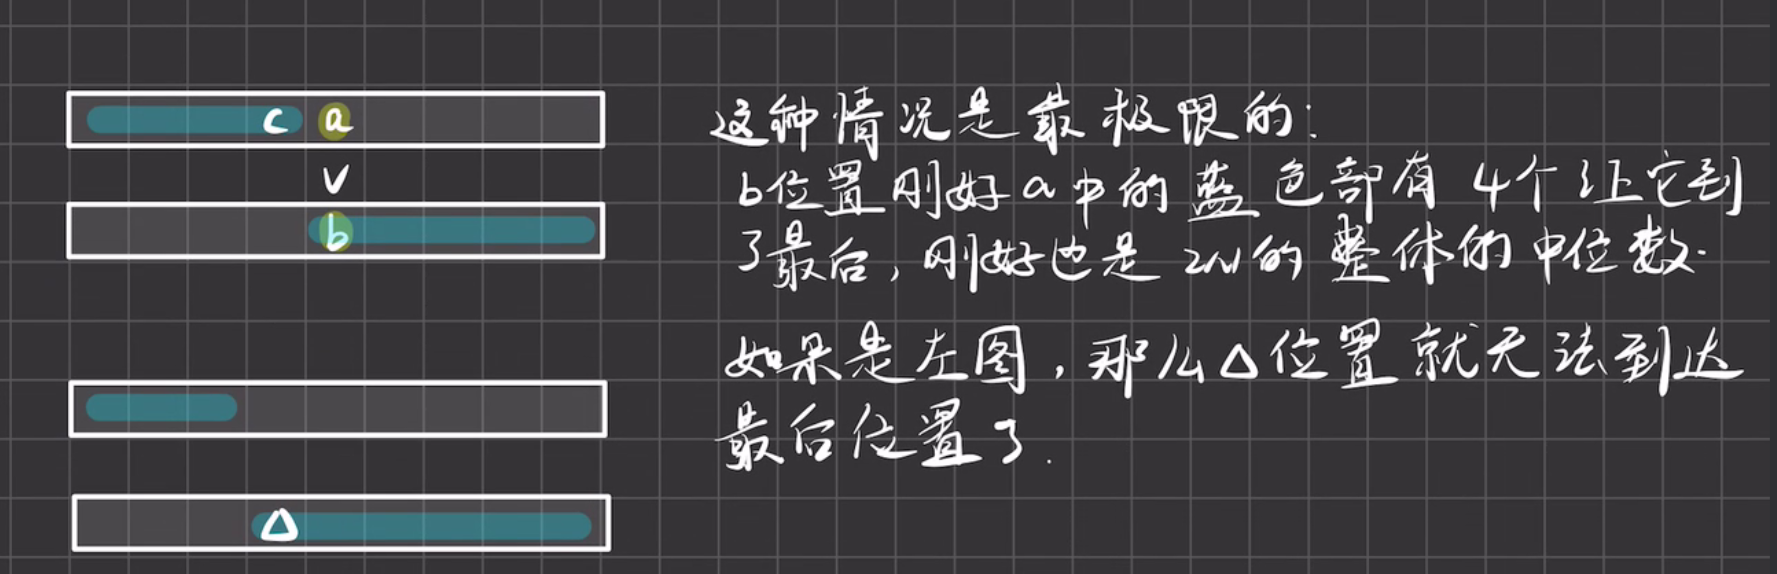 c a
∨
b
Δ
这种情况是最极限的:
b位置刚好a中的蓝色部有4个让它到
了最后,刚好也是2N的整体的中位数.
如果是左图,那么Δ位置就无法到达
最后位置了.